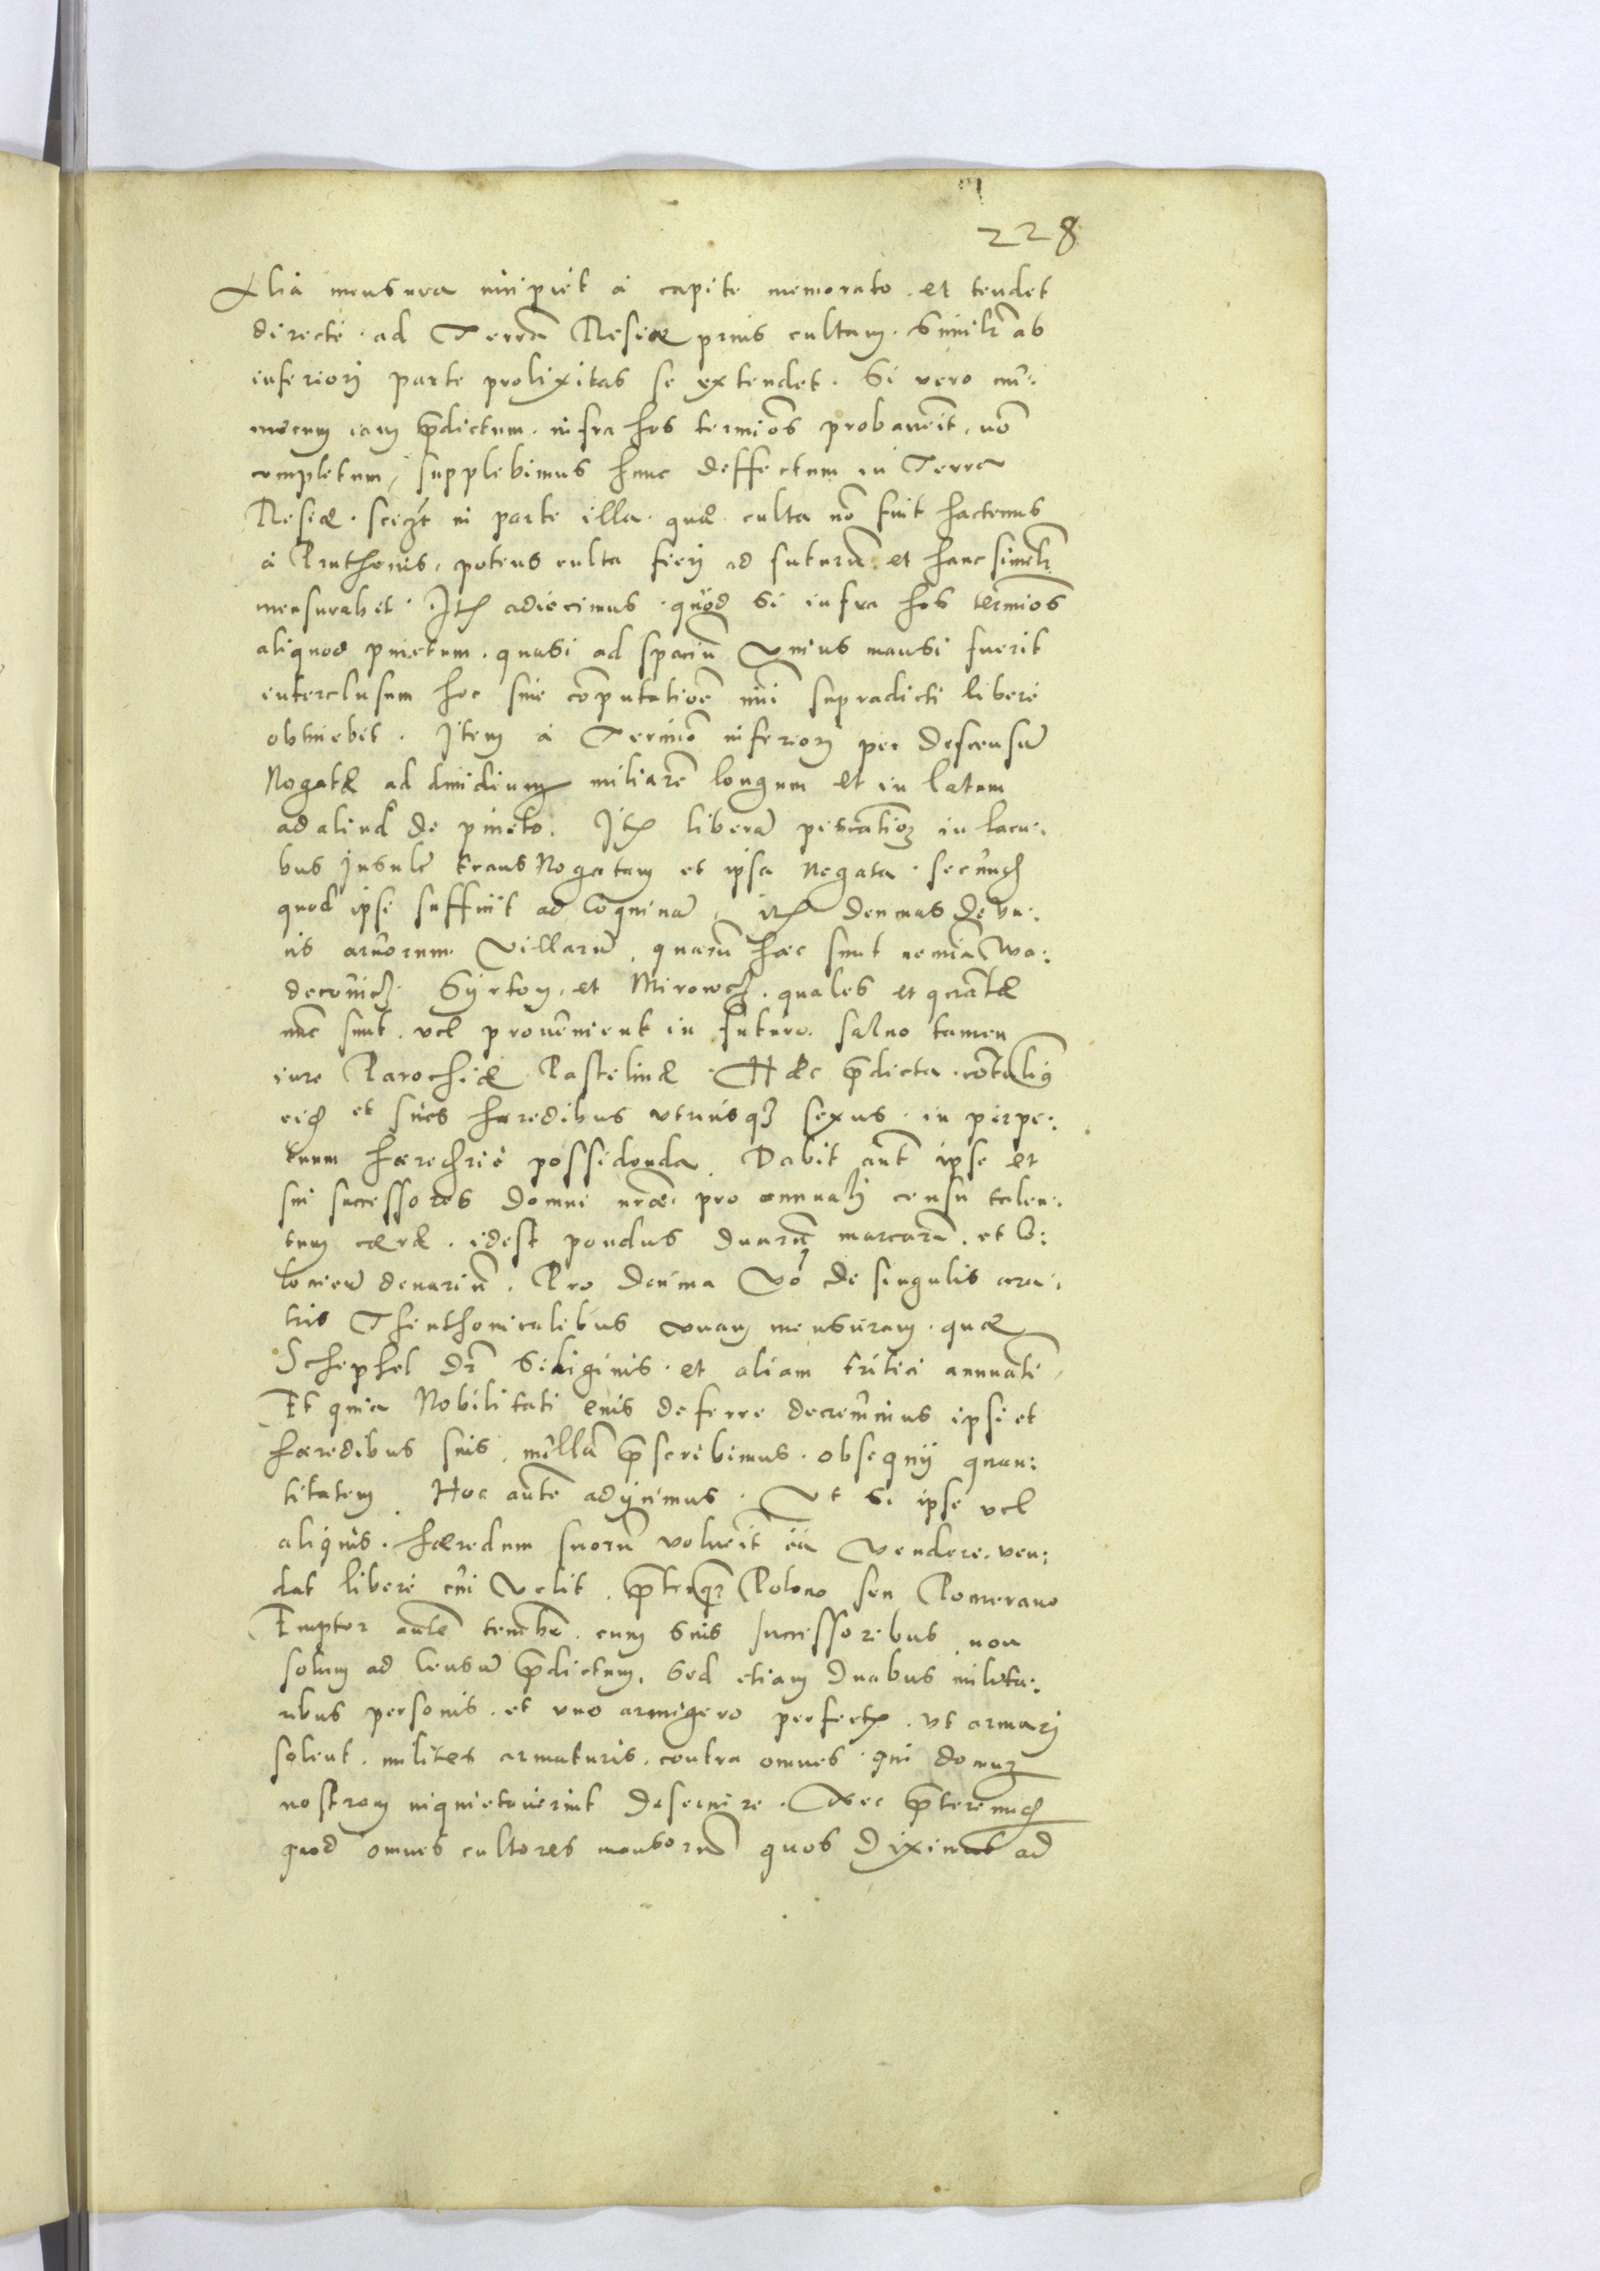 228
Alia mensura incipiet à capite memorato. et tendet
directé. ad Terrã Resiæ prius cultam. Similr̃ ab
inferiorj parte prolixitas se extendet. Si vero nũ:
merum iam p̃dictum. infra hos termiõs probaverit. nõ
completum, supplebimus hunc deffectum in Terra
Resiæ. scczt in parte illa. quæ culta nõ fuit hactenus
à Pruthenis, potens culta fierj ad futurũ. et hanc similr̃
mensurabit. Itẽ adiecimus. quod si infra hos termios
aliquod pinetum. quasi ad spaciũ Vnius mansi fuerit
interclusum hoc sine cõputatiõe nũi supradicti liberé
obtinebit. Item à Termiõ inferiorj per descensũ
Nogatæ ad dimidium miliarẽ longum et in latum
ad aliud de pineto. Itẽ liberã piscatioẽ in lacu:
bus Insulæ trans Nogatam et ipsa Nogata. secundũ
quod ipsi sufficit ad Coquinã, itẽ decimas de vn:
is arvorum Villarũ, quarũ hæc sunt nomina Wa:
decowicz. Syrtoy. et Mirowcz. quales et q̃rantæ
nũc sunt. vel provenient in futuro. salvo tamen
iure Parochiæ Pastelinæ. Hæc p̃dicta. cõtulimꝰ
eid̃ et suis hæredibus vtriusq3 sexus. in perpe:
tuum hæredrié possidenda. Dabit aũt ipse et
sui successores domui nrãe. pro annualj censu talen:
tum cæræ. idest pondus duarũ marcarũ. et Co:
loniensẽ denariũ. Pro decima Vo de singulis ara:
tris Theuthonicalibus vnam mensuram. quæ
Schephel dr̃ Siliginis. et aliam tritici annuatĩ,
Et quia Nobilitati eius deferre decrevimus ipsi et
hæredibus suis, nullã p̃scribimus. obsequij quan:
titatem. Hoc aũtẽ adijcimus. Vt si ipse vel
aliquis. hæredum suorũ voluerit ea Vendere. ven:
dat liberé cui Velit. p̃terq3 Polono seu Pomerano
Emptor autẽ tenebit. cum suis successoribus non
solum ad Censũ p̃dictum. sed etiam duabus milita:
ribus personis. et vno armigero perfecté. vt armarj
solent. milites armaturis. contra omnes. qui domum
nostram inquietaverint deservire. Nec p̃tereund̃
quod omnes cultores mansorũ quos diximus ad